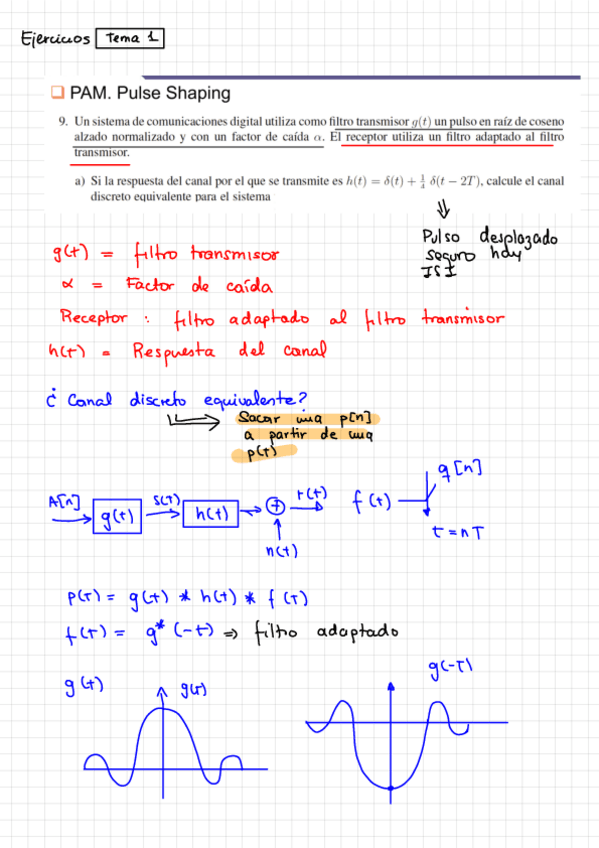 Ejercicios Tema 1
PAM. Pulse Shaping
9. Un sistema de comunicaciones digital utiliza como filtro transmisor g(t) un pulso en raíz de coseno
alzado normalizado y con un factor de caída α. El receptor utiliza un filtro adaptado al filtro
transmisor.
a) Si la respuesta del canal por el que se transmite es h(t) = δ(t) + 1/4 δ(t − 2T), calcule el canal
discreto equivalente para el sistema
⇓
Pulso desplazado
seguro hay
ISI
g(t) = filtro transmisor
α = Factor de caída
Receptor : filtro adaptado al filtro transmisor
h(t) = Respuesta del canal
¿ Canal discreto equivalente?
Sacar una p[n]
a partir de una
p(t)
A[n] g(t) s(t) h(t) + r(t) f(t) q[n]
n(t) t = nT
p(t) = g(t) * h(t) * f(t)
f(t) = g*(-t) ⇒ filtro adaptado
g(t) g(t) g(-t)